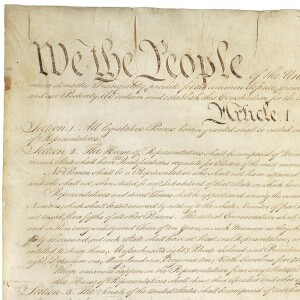 We the People of the Uni
insure domestic Tranquility, provide for the common defence, promo
and our Posterity, do ordain and establish this Constitution for the
Article. I
Section. 1. All legislative Powers herein granted shall be vested in
Representatives.
Section. 2. The House of Representatives shall be composed of Mem
in each State shall have Qualifications requisite for Electors of the most num
No Person shall be a Representative who shall not have attained
and who shall not, when elected, be an Inhabitant of that State in which he
Representatives and direct Taxes shall be apportioned among the several
Numbers, which shall be determined by adding to the whole Number of free
not taxed, three fifths of all other Persons. The actual Enumeration shall
and within every subsequent Term of ten Years, in such Manner as they
thirty Thousand, but each State shall have at Least one Representative; and
entitled to chuse three, Massachusetts eight, Rhode Island and
eight, Delaware one, Maryland six, Virginia ten, North Carolina five,
When vacancies happen in the Representation from any State
The House of Representatives shall chuse their Speaker and
Section. 3. The Senate of the United States shall be composed of two